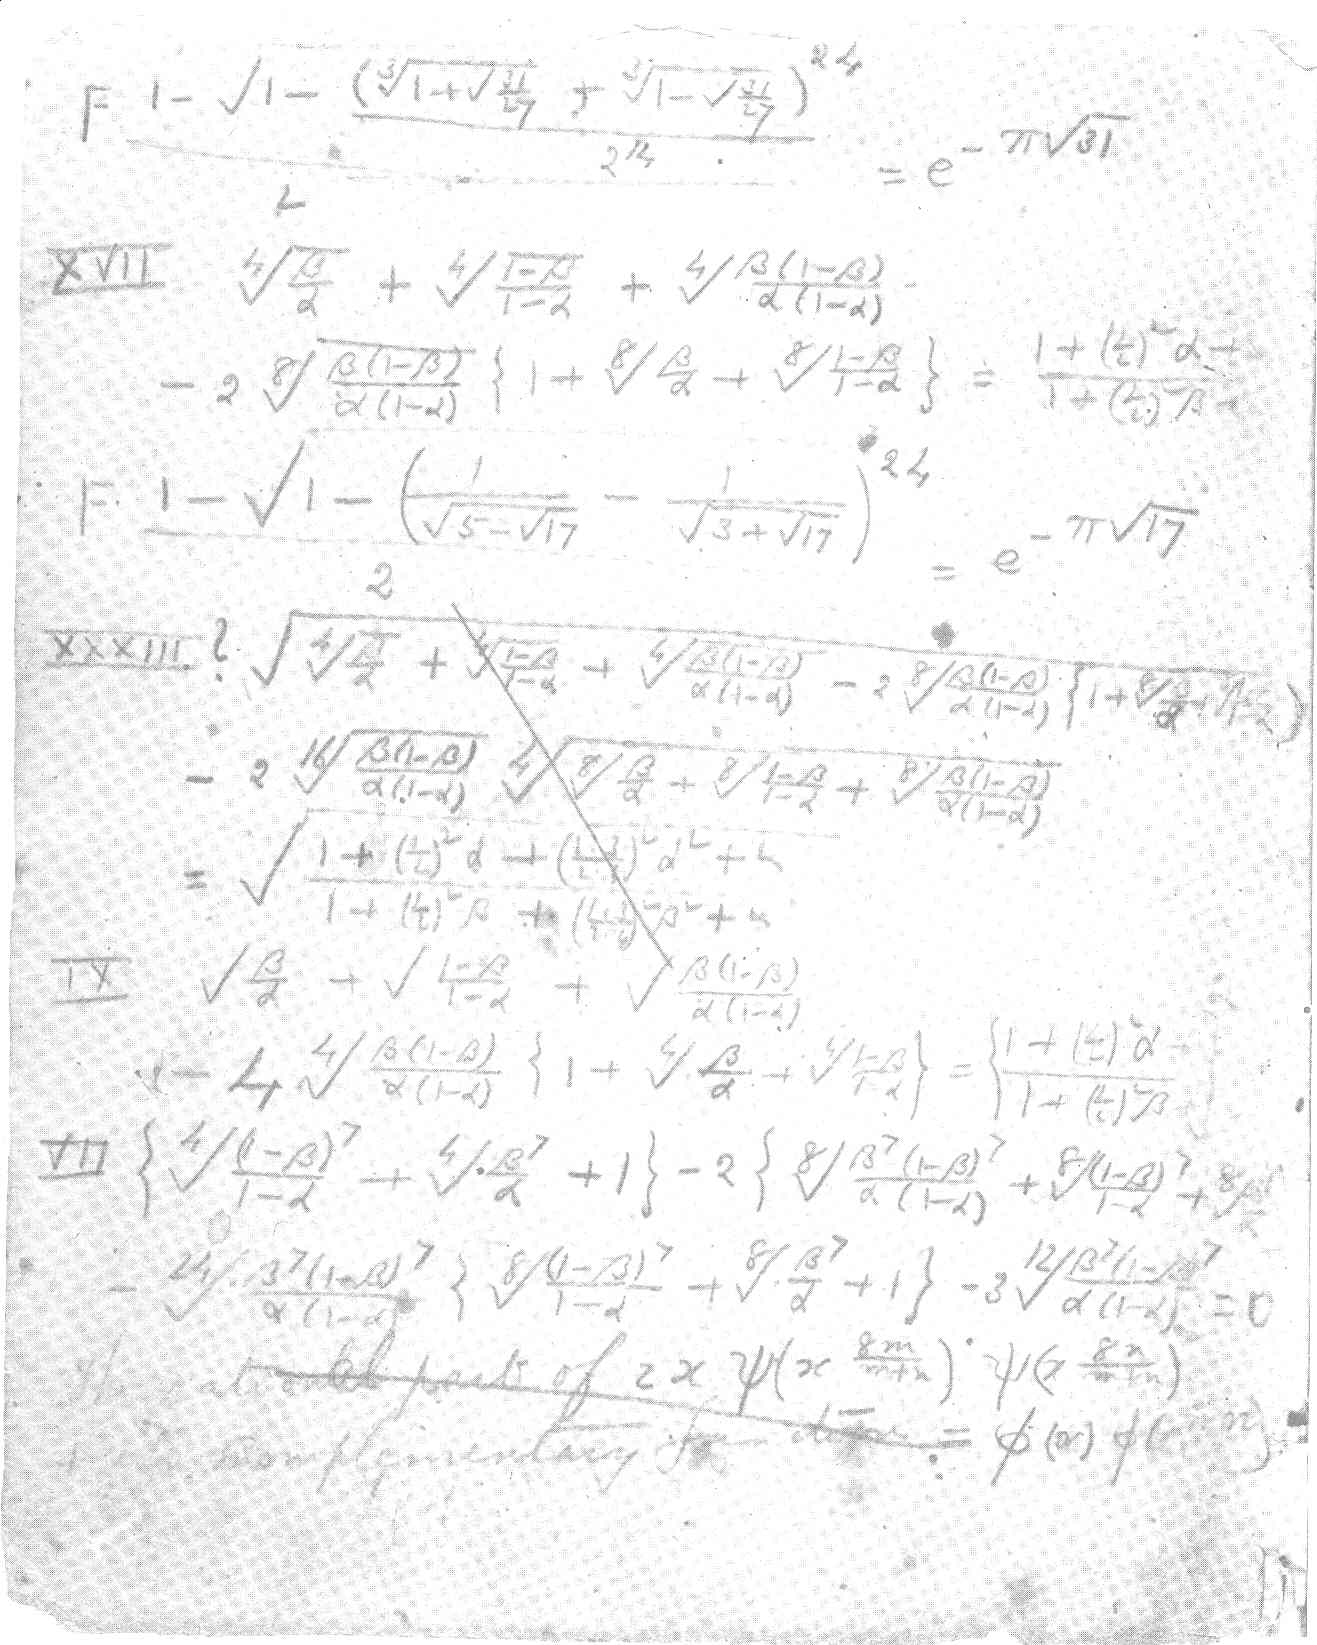 F (1 - √(1 - (∛(1+√(31/27)) + ∛(1-√(31/27)))^24 / 2^24)) / 2 = e^(-π√31)
XVII ∜(β/α) + ∜((1-β)/(1-α)) + ∜(β(1-β)/α(1-α))
- 2 ⁸√(β(1-β)/α(1-α)) {1 + ⁸√(β/α) + ⁸√((1-β)/(1-α))} = (1 + (1/2)² α + / 1 + (1/2)² β +
F (1 - √(1 - (1/√(5-√17) - 1/√(3+√17))^24)) / 2 = e^(-π√17)
XXXIII. ? √(∜(β/α) + ∜((1-β)/(1-α)) + ∜(β(1-β)/α(1-α)) - 2 ⁸√(β(1-β)/α(1-α)) {1 + ⁸√(β/α) +
- 2 ¹⁶√(β(1-β)/α(1-α)) ∜(⁸√(β/α) + ⁸√((1-β)/(1-α)) + ⁸√(β(1-β)/α(1-α)))
= √((1 + (1/2)² α + (1·3/2·4)² α² + &) / (1 + (1/2)² β + (1·3/2·4)² β² + &))
IX √(β/α) + √((1-β)/(1-α)) + √(β(1-β)/α(1-α))
- 4 ∜(β(1-β)/α(1-α)) {1 + ∜(β/α) + ∜((1-β)/(1-α))} = {(1 + (1/2)² α / 1 + (1/2)² β
VII {∜((1-β)⁷/(1-α)) + ∜(β⁷/α) + 1} - 2 {⁸√(β⁷(1-β)⁷/α(1-α)) + ⁸√((1-β)⁷/(1-α)) + ⁸√
- ²⁴√(β⁷(1-β)⁷/α(1-α)) {⁸√((1-β)⁷/(1-α)) + ⁸√(β⁷/α) + 1} - 3 ¹²√(β⁷(1-β)⁷/α(1-α)) = 0
part of 2x ψ(x^(8m/(m+n))) ψ(x^(8n/(m+n)))
complementary = φ(x) φ(